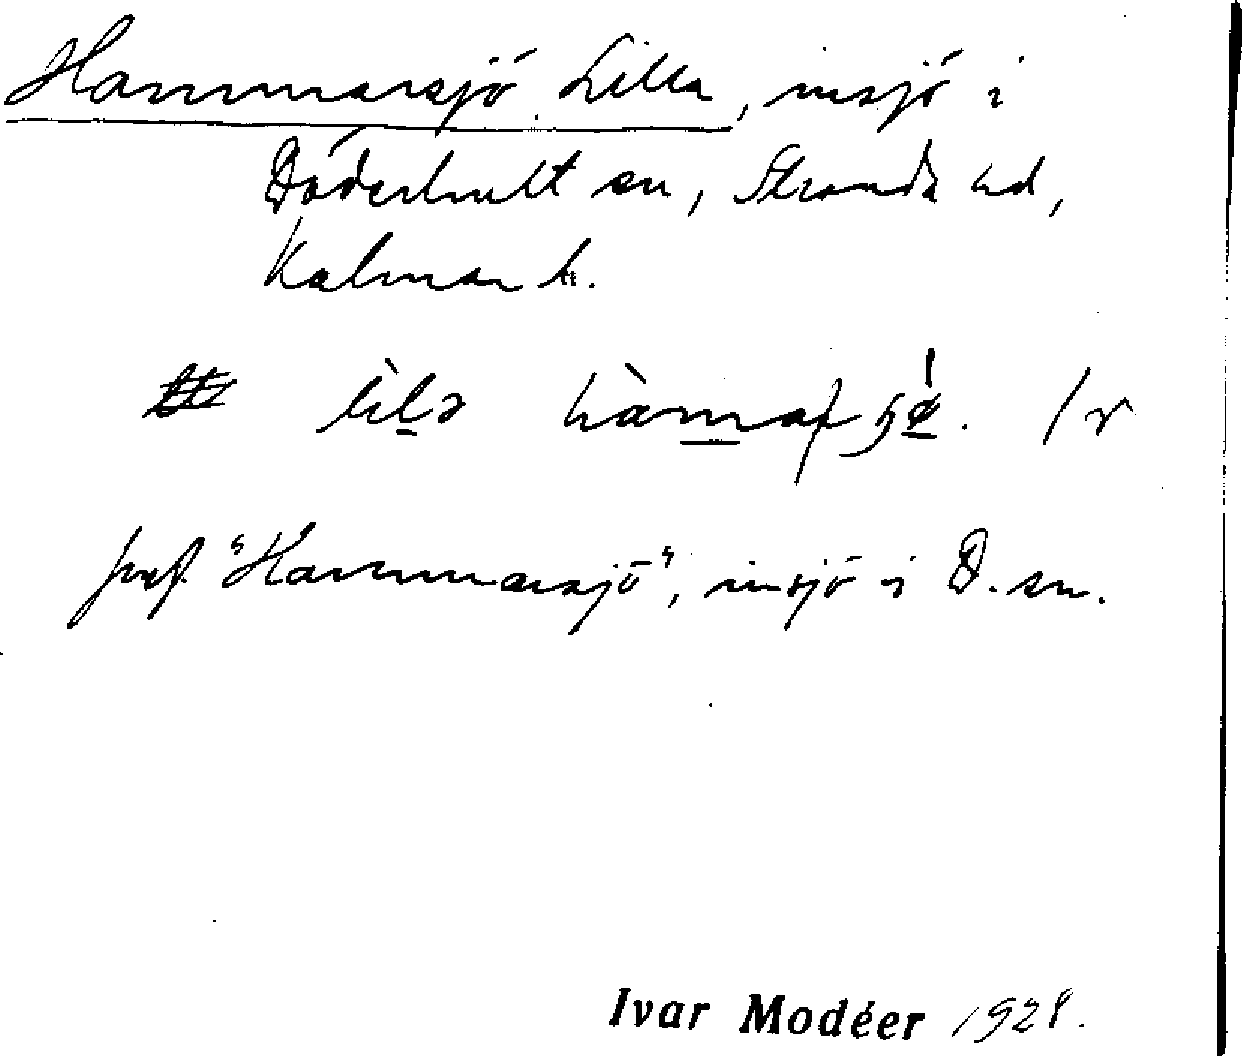 Hammarsjö, Lilla, insjö i
Döderhult sn, Stranda hd,
Kalmar l.
lìlə hàmaʃ
"Hammarsjö", insjö i D. sn.
Ivar Modéer 1928.